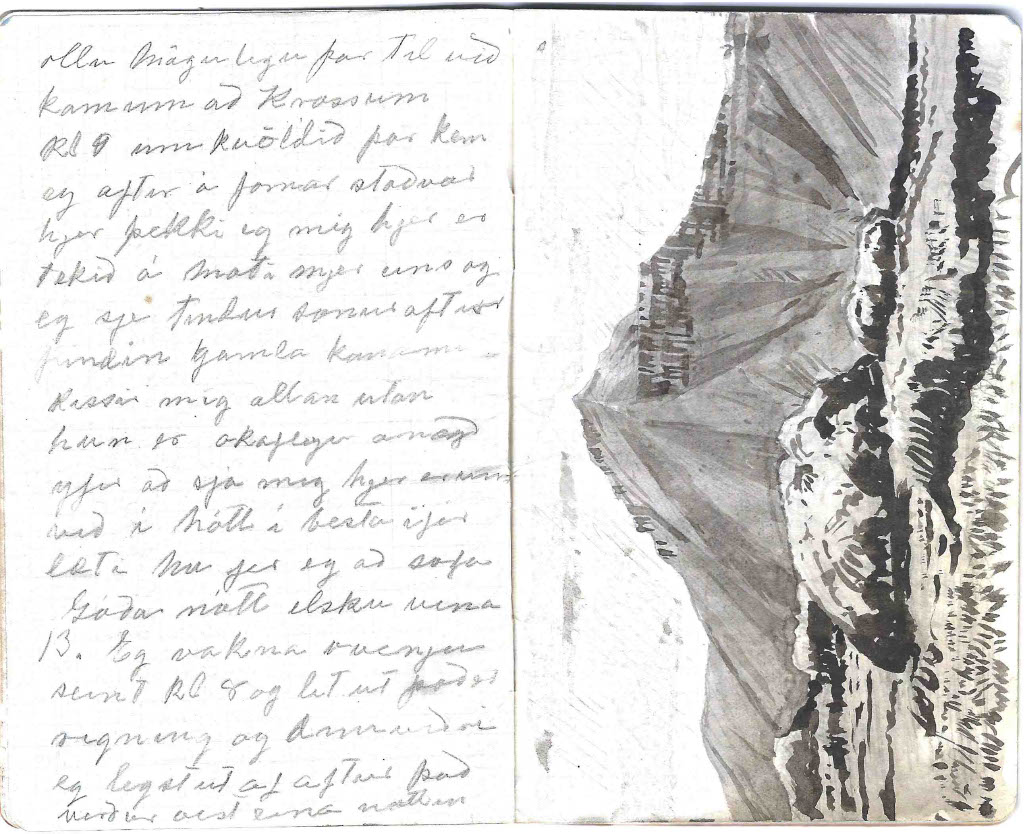 ollu mögulegu þar til við
komum að Krossum
Kl 9 um kvöldið þar kem
eg aftur á fornar stöðvar
hjer þekki eg mig hjer er
tekið á móti mjer eins og
eg sje sonur aftur
fundin gamla konan
kissir mig allan utan
hun er akaflega anægð
yfir að sjá mig hjer erum
við í nótt í besta ifir
læti nu fer eg að sofa
Góða nótt elsku vina
13. Eg vakna ovenju
seint Kl 8 og lit ut
rigning og dimmviðri
eg legst ut af aftur það
verður vist eina nóttin